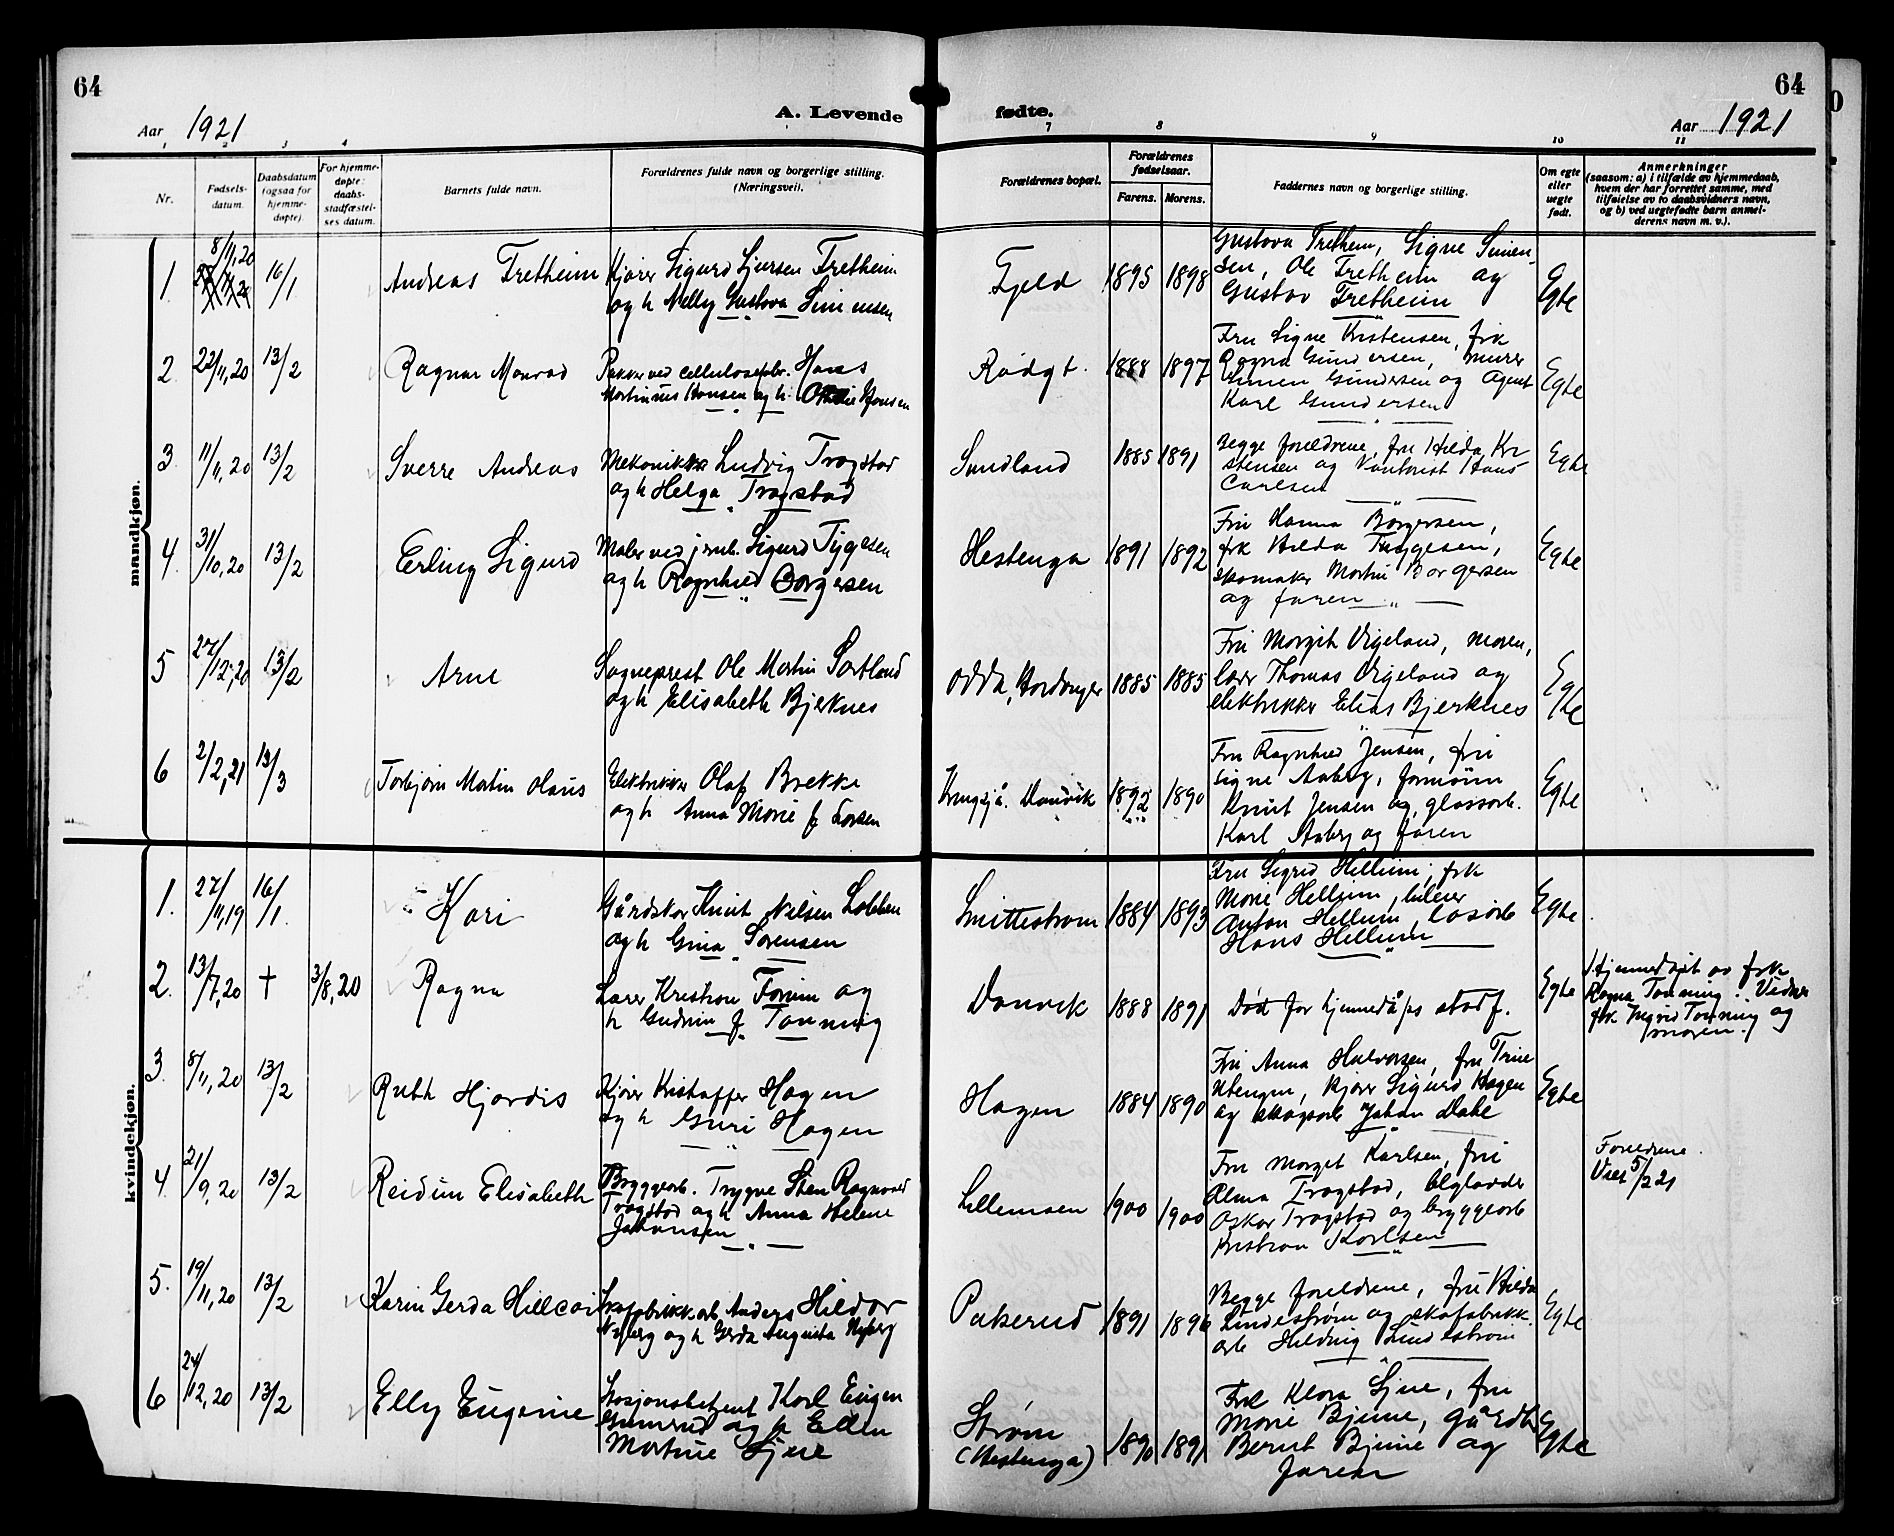 64
64
A. Levende fødte.
Aar 1921
Aar 1921
1 2 3 4 7 8 9 10 11
Nr.
Fødsels-
datum.
Daabsdatum
(ogsaa for
hjemme-
døpte).
For hjemme-
døpte:
daabs-
stadfæstel-
ses datum.
Barnets fulde navn.
Forældrenes fulde navn og borgerlige stilling.
(Næringsvei).
Forældrenes bopæl.
Forældrenes
fødselsaar.
Farens. Morens.
Faddernes navn og borgerlige stilling.
Om egte
eller
uegte
født.
Anmerkninger
(saasom: a) i tilfælde av hjemmedaab,
hvem der har forrettet samme, med
tilføielse av to daabsvidners navn,
og b) ved uegtefødte barn anmel-
derens navn m. v.).
mandkjøn.
1. 8/11,20 16/1 Andreas Fretheim
Kjører Sigurd Sjursen Fretheim
og h Nelly Gustava Simensen
Fjeld 1895 1898
Gustava Fretheim, Signe Simen-
sen, Ole Fretheim og
Gustav Fretheim
Egte
2. 22/11,20 13/2 Ragnar Monrad
Pakker ved cellulosefabr. Hans
Martinius Hansen og h. Hansen
Rødgt. 1888 1897
Fru Signe Kristensen, frk
Ragna Gundersen, murer
Simen Gundersen og Agent
Karl Gundersen
Egte
3. 11/11,20 13/2 Sverre Andreas
Mekaniker Ludvig Tragstad
og h Helga Tragstad
Sundland 1885 1891
Begge forældrene, fru Hilda Kri
stensen og Hans
Carlsen
Egte
4. 31/10,20 13/2 Erling Sigurd
Maler ved jernb. Sigurd Tygesen
og h Ragnhild Borgersen
Hestenga 1891 1892
Fru Hanna Borgersen,
frk Hilda Tryggesen,
skomaker Martin Borgersen
og faren
Egte
5 27/12,20 13/2 Arne
Sogneprest Ole Martin Sortland
og h Elisabeth Bjerknes
Odda, Hardanger 1885 1885
Fru Margit Vigeland, moren,
lærer Thomas Vigeland og
elektriker Elias Bjerknes
Egte
6 2/2,21 13/3 Torbjørn Martin Olaus
Elektriker Olaf Brekke
og h Anna Marie f Larsen
Kringsjå. Danvik 1892 1890
Fru Ragnhild Jensen, fru
Signe Aaberg, formann
Knut Jensen og glassarb.
Karl Aaberg og faren
Egte
kvindekjøn.
1. 27/11,19 16/1 Kari
Gårdskar Knut Nilsen Lobben
og h Gina Sørensen
Smittestrøm 1884 1893
Fru Sigrid Hellum, frk
Marie Hellum,
Anton Hellum, løsarb
Hans Hellum
Egte
2. 13/7,20 † 3/8,20 Ragna
Lærer Kristian Forum og
h Gudrun f Tonning
Danvik 1888 1891
Død før hjemmedåps stadf.
Egte
Hjemmedøpt av frk
Ragna Tonning. Vidner
frk Ingrid Tonning og
moren.
3. 8/11,20 13/2 Ruth Hjørdis
Kjører Kristoffer Hagen
og h Guri Hagen
Hagen 1884 1890
Fru Anna Halvorsen, fru Trine
Utengen, kjører Sigurd Hagen
og skogsarb Johan Dahl
Egte
4. 21/9,20 13/2 Reidun Elisabeth
Bryggearb. Trygve Sten Ragnvald
Tragstad og h Anna Helene
Johansen
Lillemoen 1900 1900
Fru Margit Karlsen, fru
Alma Tragstad, ølgladder
Oskar Tragstad og bryggearb
Kristian Karlsen
Foreldrene
Viet 5/2 21
5. 19/11,20 13/2 Karin Gerda Hillevi
Skofabrikk.arb Anders Hildor
Nyberg og h Gerda Augusta Nyberg
Pukerud 1891 1896
Begge foreldrene, fru Hilda
Lindestrøm og skofabrikk.
arb Helding Lindestrøm
Egte
6 24/12,20 13/2 Elly Eugenie
Stasjonsbetjent Karl Eugen
Gunnerud og h Ellen
Martine Ljue
Strøm
(Hestenga) 1890 1891
Frk Klara Ljue, fru
Marie Bjune, gårdbr
Bernt Bjune og
faren
Egte